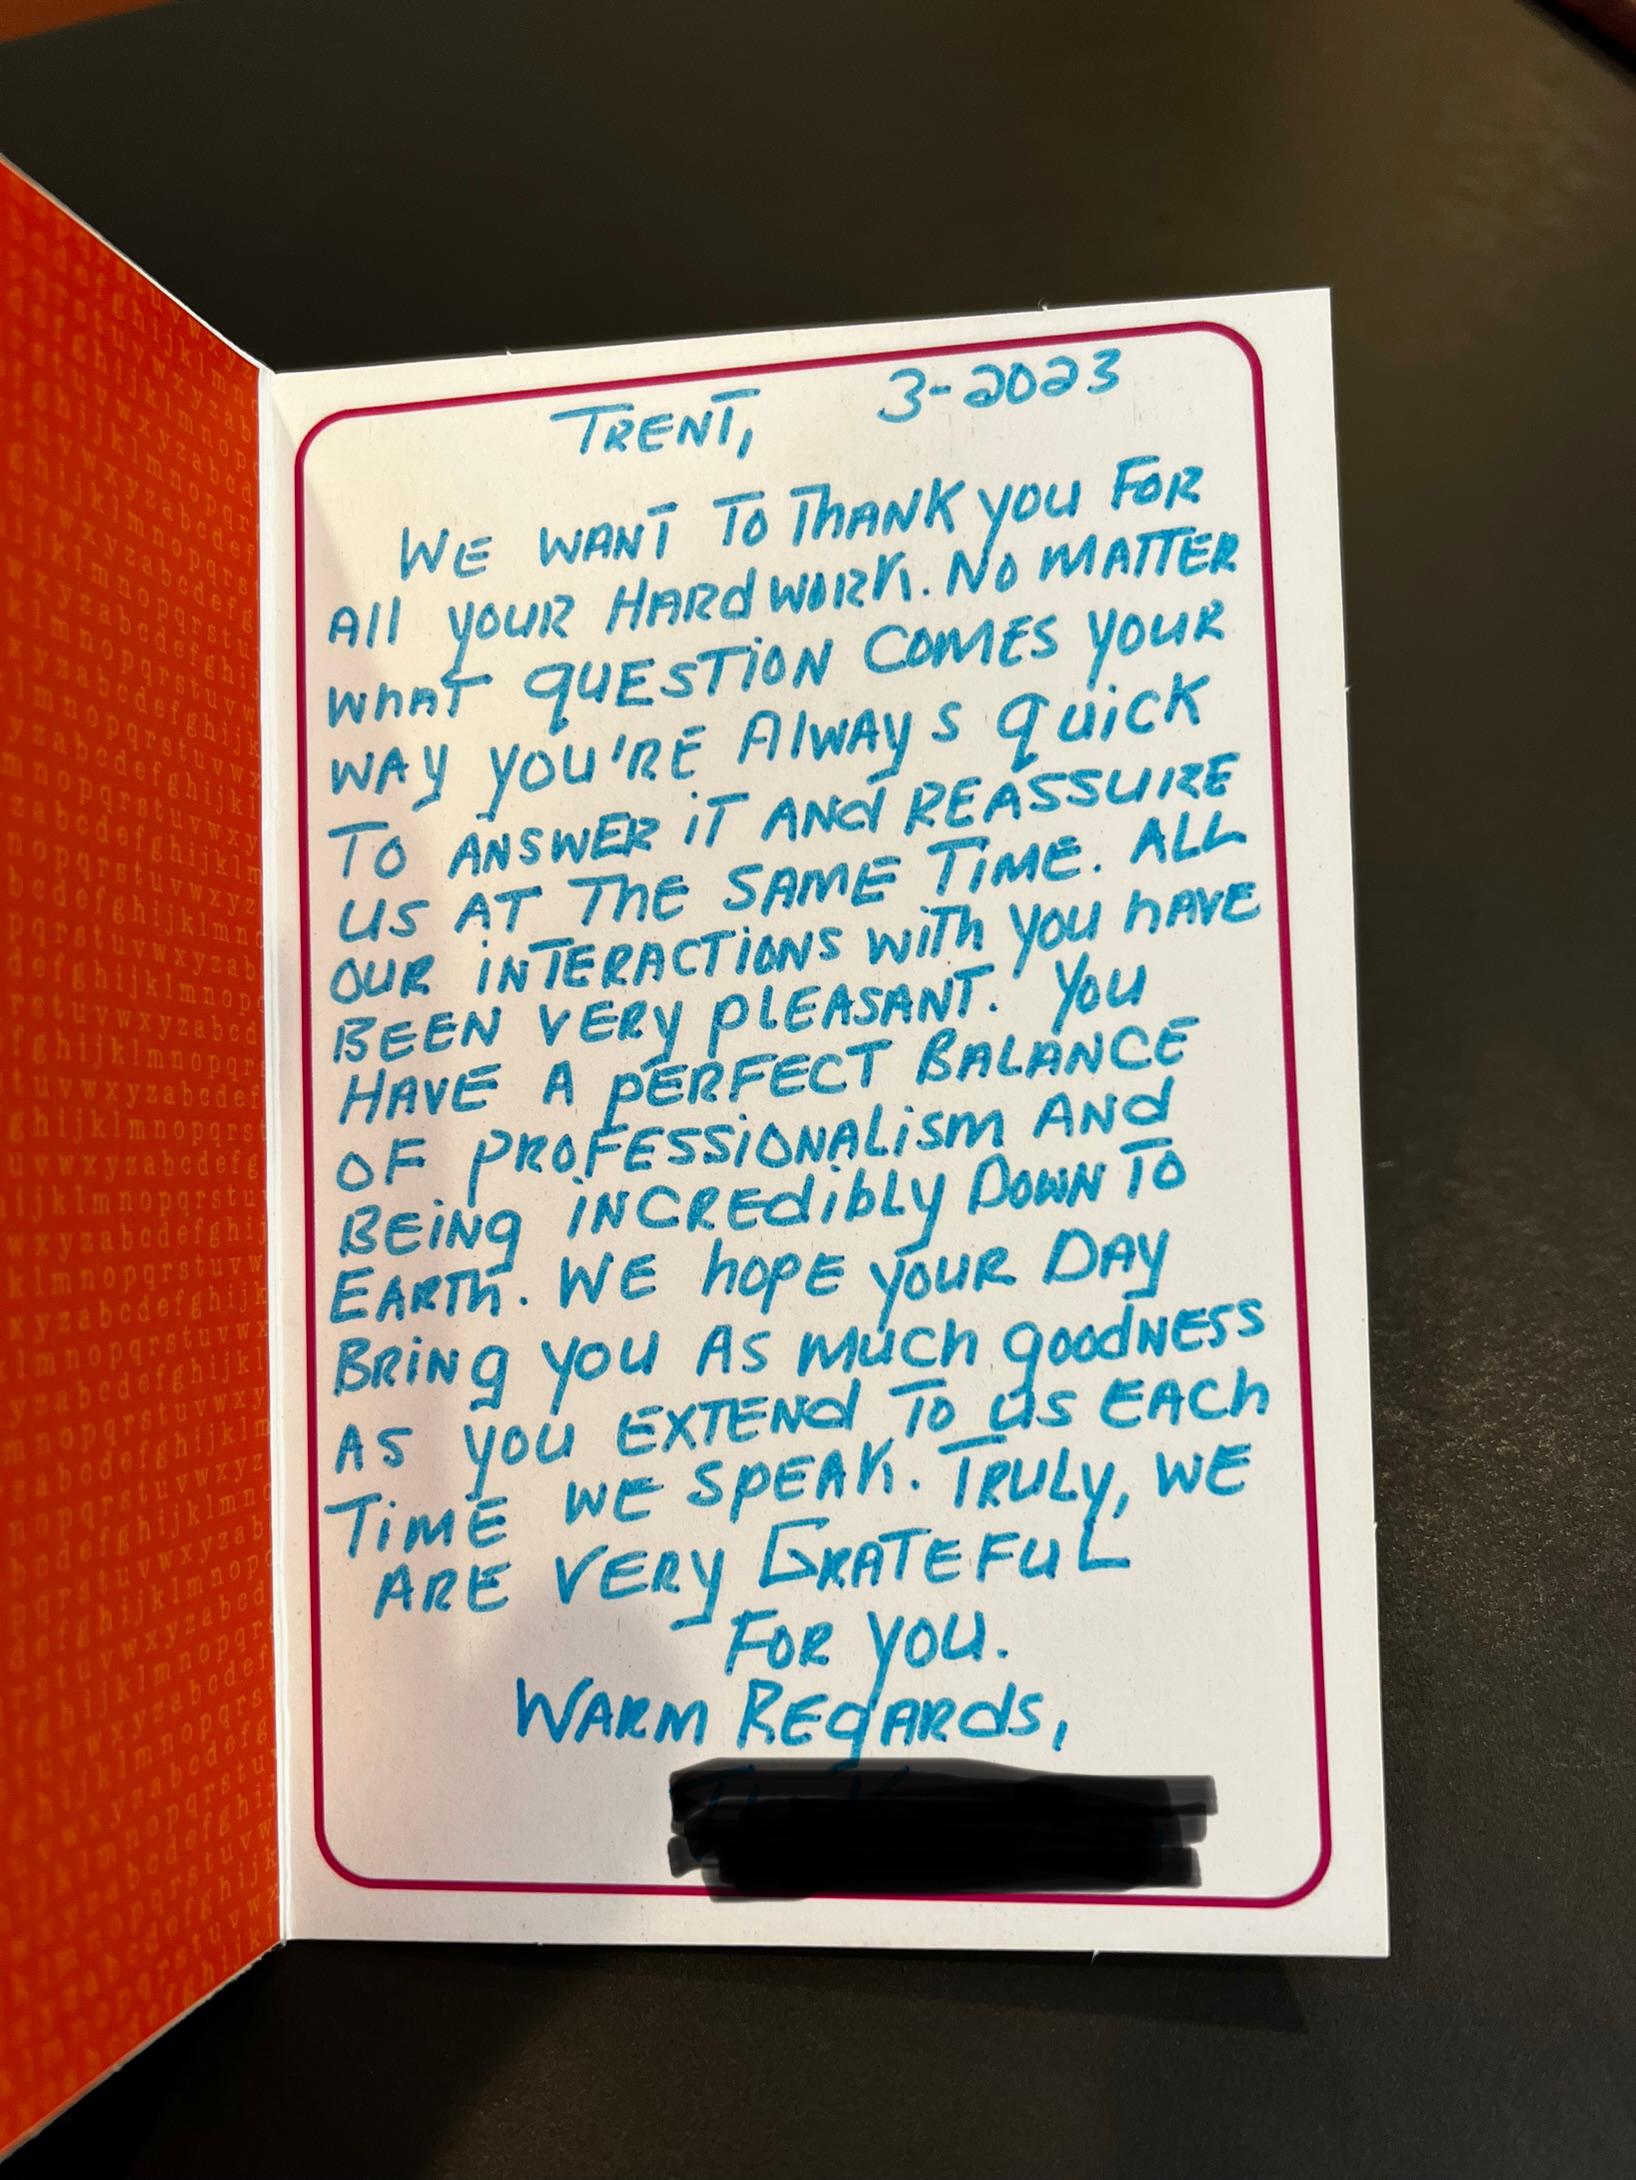 TRENT, 3-2023
WE WANT TO THANK YOU FOR
All YOUR HARd WORK. NO MATTER
WhAT QUESTION COMES YOUR
WAY YOU'RE AlWAYS QUiCK
TO ANSWER iT ANd REASSURE
US AT ThE SAME TiME. ALL
OUR iNTERACTiONS WiTh YOU hAVE
BEEN VERY PLEASANT. YOU
HAVE A PERFECT BALANCE
OF PROFESSiONALiSM ANd
BEiNg iNCREdibLY DOWN TO
EARTh. WE hOPE YOUR DAY
BRiNg YOU AS MUCh goodNESS
AS YOU EXTENd TO US EACh
TiME WE SPEAK. TRULY, WE
ARE VERY GRATEFUL
FOR YOU.
WARM REgARdS,